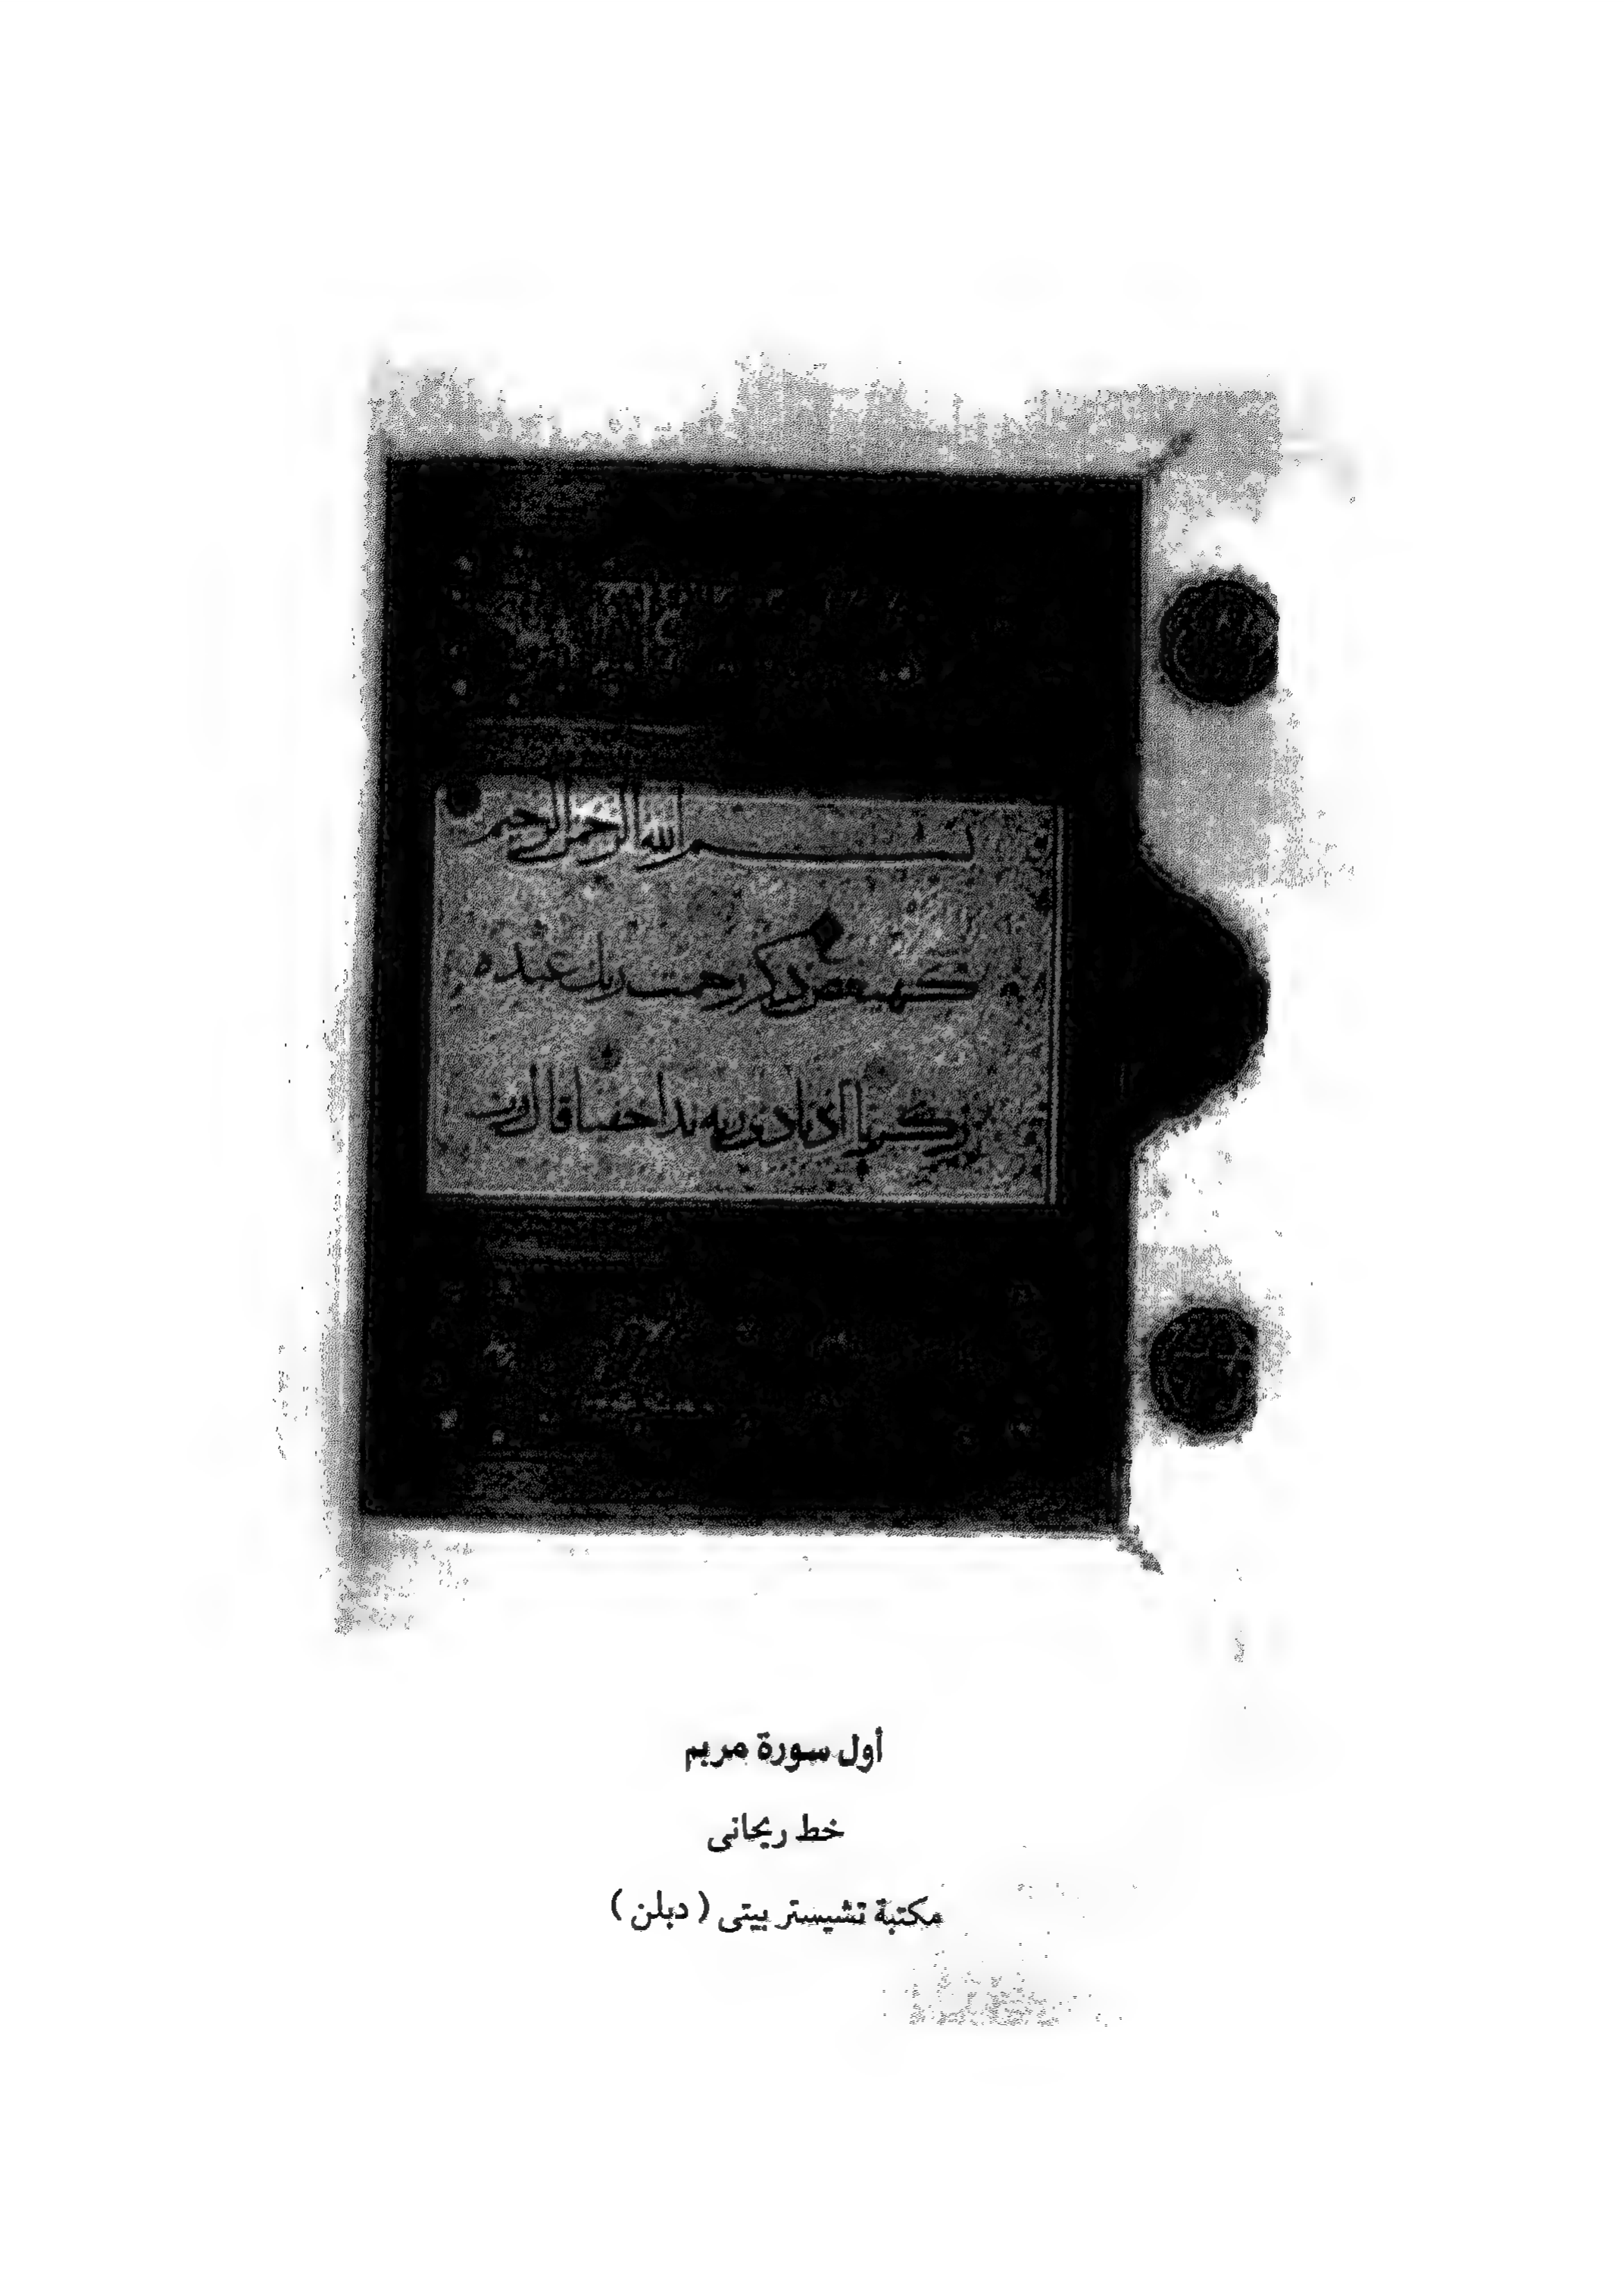 بسم الله الرحمن الرحيم
كهيعص ذكر رحمت ربك عبده
زكريا اذ نادى ربه ندا خفيا قال رب
أول سورة مريم
خط ريحانى
مكتبة تشيستر بيتى ( دبلن )